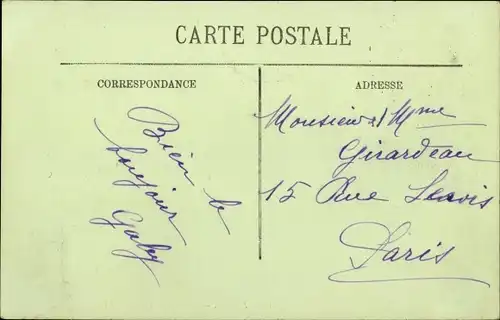 CARTE POSTALE
CORRESPONDANCE
Bien le
bonjour
Gaby
ADRESSE
Monsieur & Mme
Girardeau
15 Rue
Paris